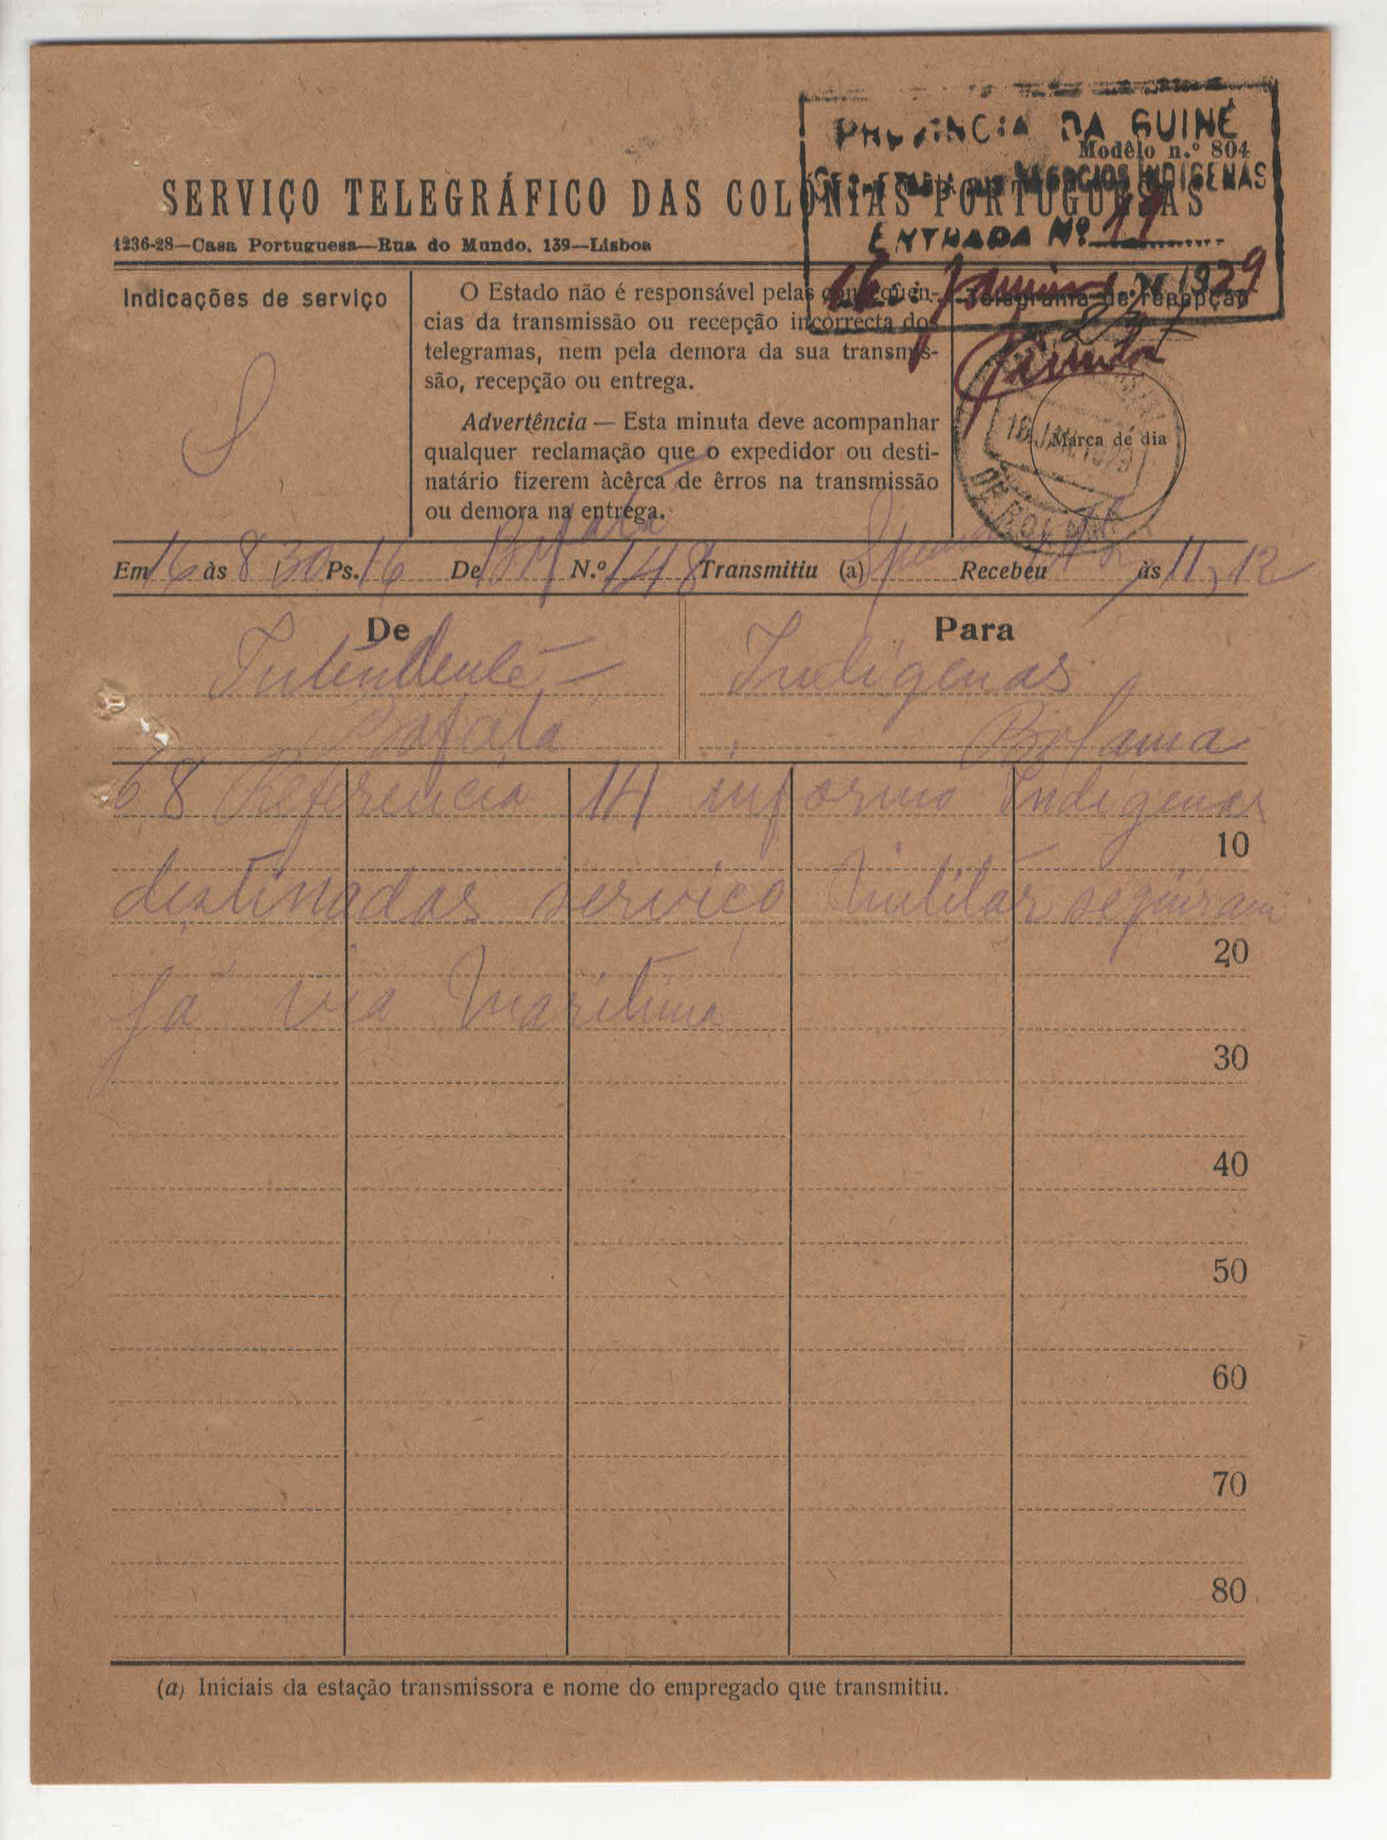 PROVINCIA DA GUINÉ
Modêlo n.º 804
NEGOCIOS INDIGENAS
SERVIÇO TELEGRÁFICO DAS COLÓNIAS PORTUGUESAS
ENTRADA Nº 11
1236-28—Casa Portuguesa—Rua do Mundo, 139—Lisboa
16 Janeiro 1929
Telegrama de recepção
Indicações de serviço
S
O Estado não é responsável pelas consequên-
cias da transmissão ou recepção incorrecta dos
telegramas, nem pela demora da sua transmis-
são, recepção ou entrega.
Advertência — Esta minuta deve acompanhar
qualquer reclamação que o expedidor ou desti-
natário fizerem àcêrca de êrros na transmissão
ou demora na entrega.
Marca de dia
16 JAN 1929
Em 16 às 8,30 Ps. 16 De Bafatá N.º 148 Transmitiu (a) Recebeu às 11,12
De
Intendente
Bafatá
Para
Indigenas
Bolama
68 Referencia 14 informo Indigenas
10
destinados serviço militar seguiram
20
já via maritima
30
40
50
60
70
80
(a) Iniciais da estação transmissora e nome do empregado que transmitiu.